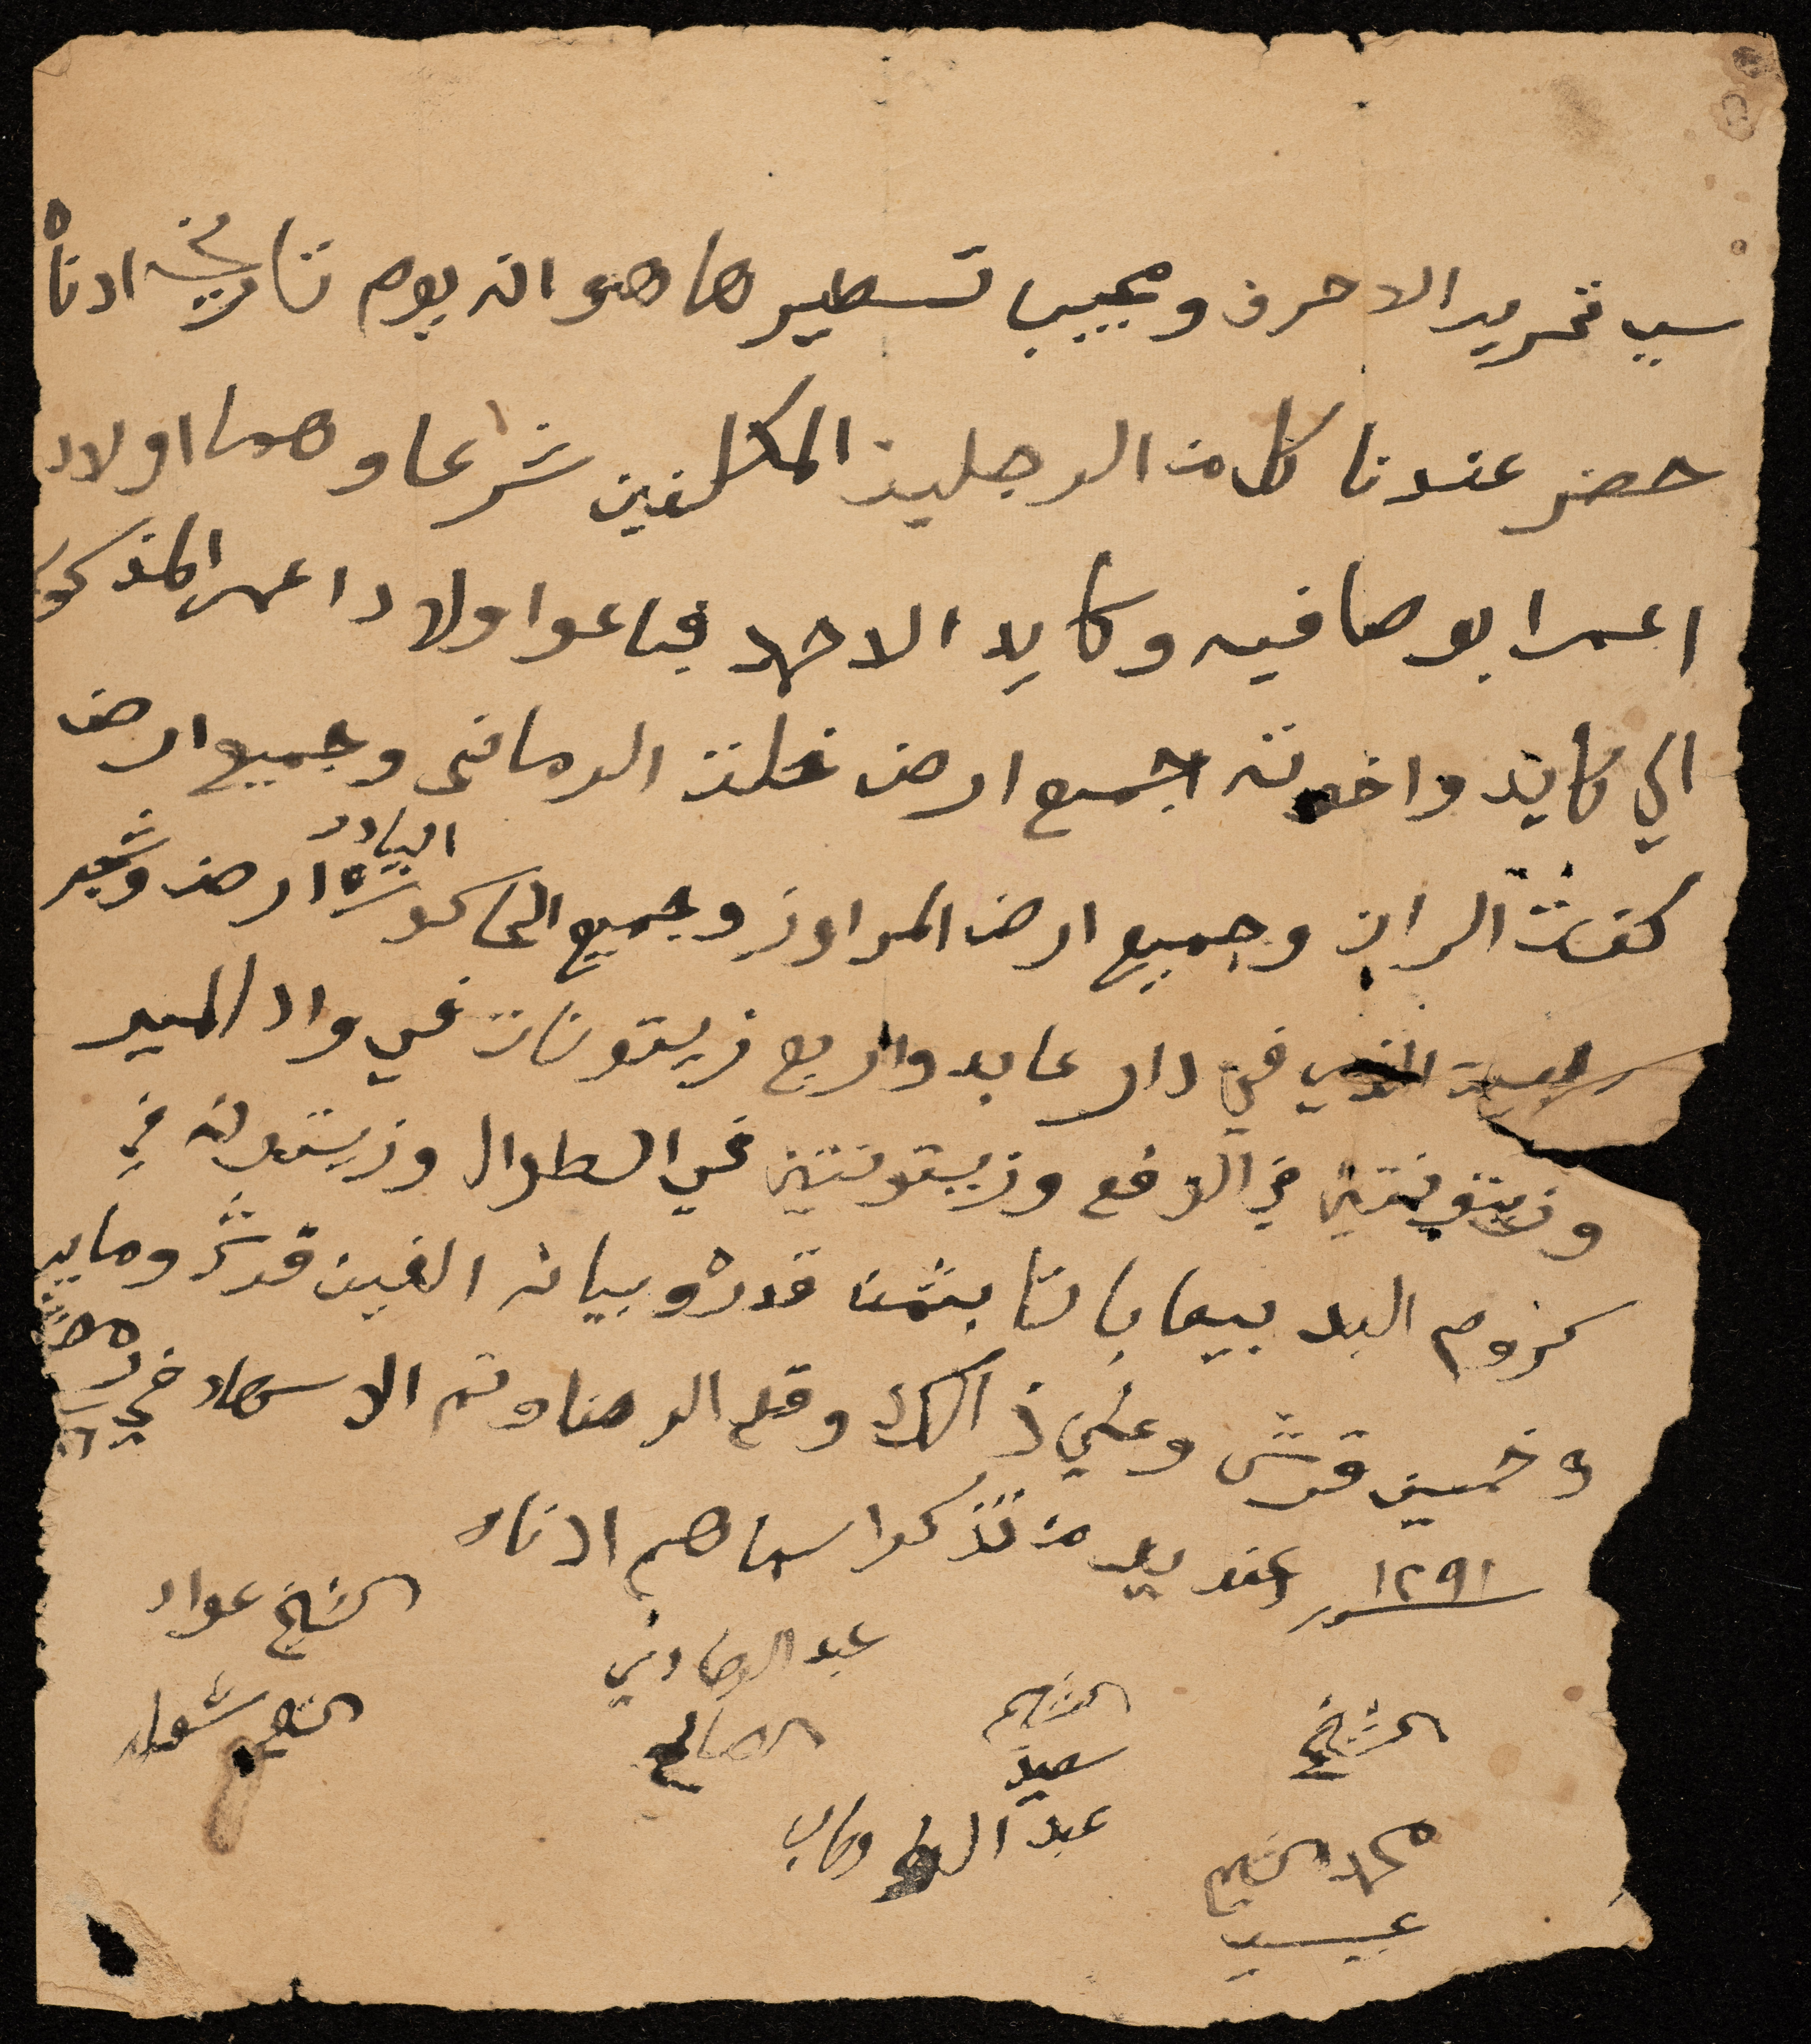 سبب تحرير الاحرف وموجب تسطيرها هو انه يوم تاريخه ادناه
حضر عندنا كل من الرجلين المكلفين شرعا وهما اولاد
اعمر ابو صافيه وكايد الاحمد فباعوا اولاد اعمر المذكور
الي كايد واخوته جميع ارض خلت الرمانى وجميع ارض
وجميع ارض المراوز وجميع الحاكوره البيادر ارض وشجر
في دار عابد واربع زيتونات في واد المير
وزيتونتين في وزيتونتين في الطوال وزيتونه في
كروم البد بيعا باتا بثمن قدره وبيانه الفين قرش ومايه
وخمسين قرش وعلي ذالك وقع الرضا وتم الاشهاد في
١٢٩١ عند يد من تذكر اسماهم ادناه
الشيخ عواد
عبد الهادي
الصالح
الشيخ
سعيد
عبد الوهاب
الشيخ
محمد الشيخ
عيسى